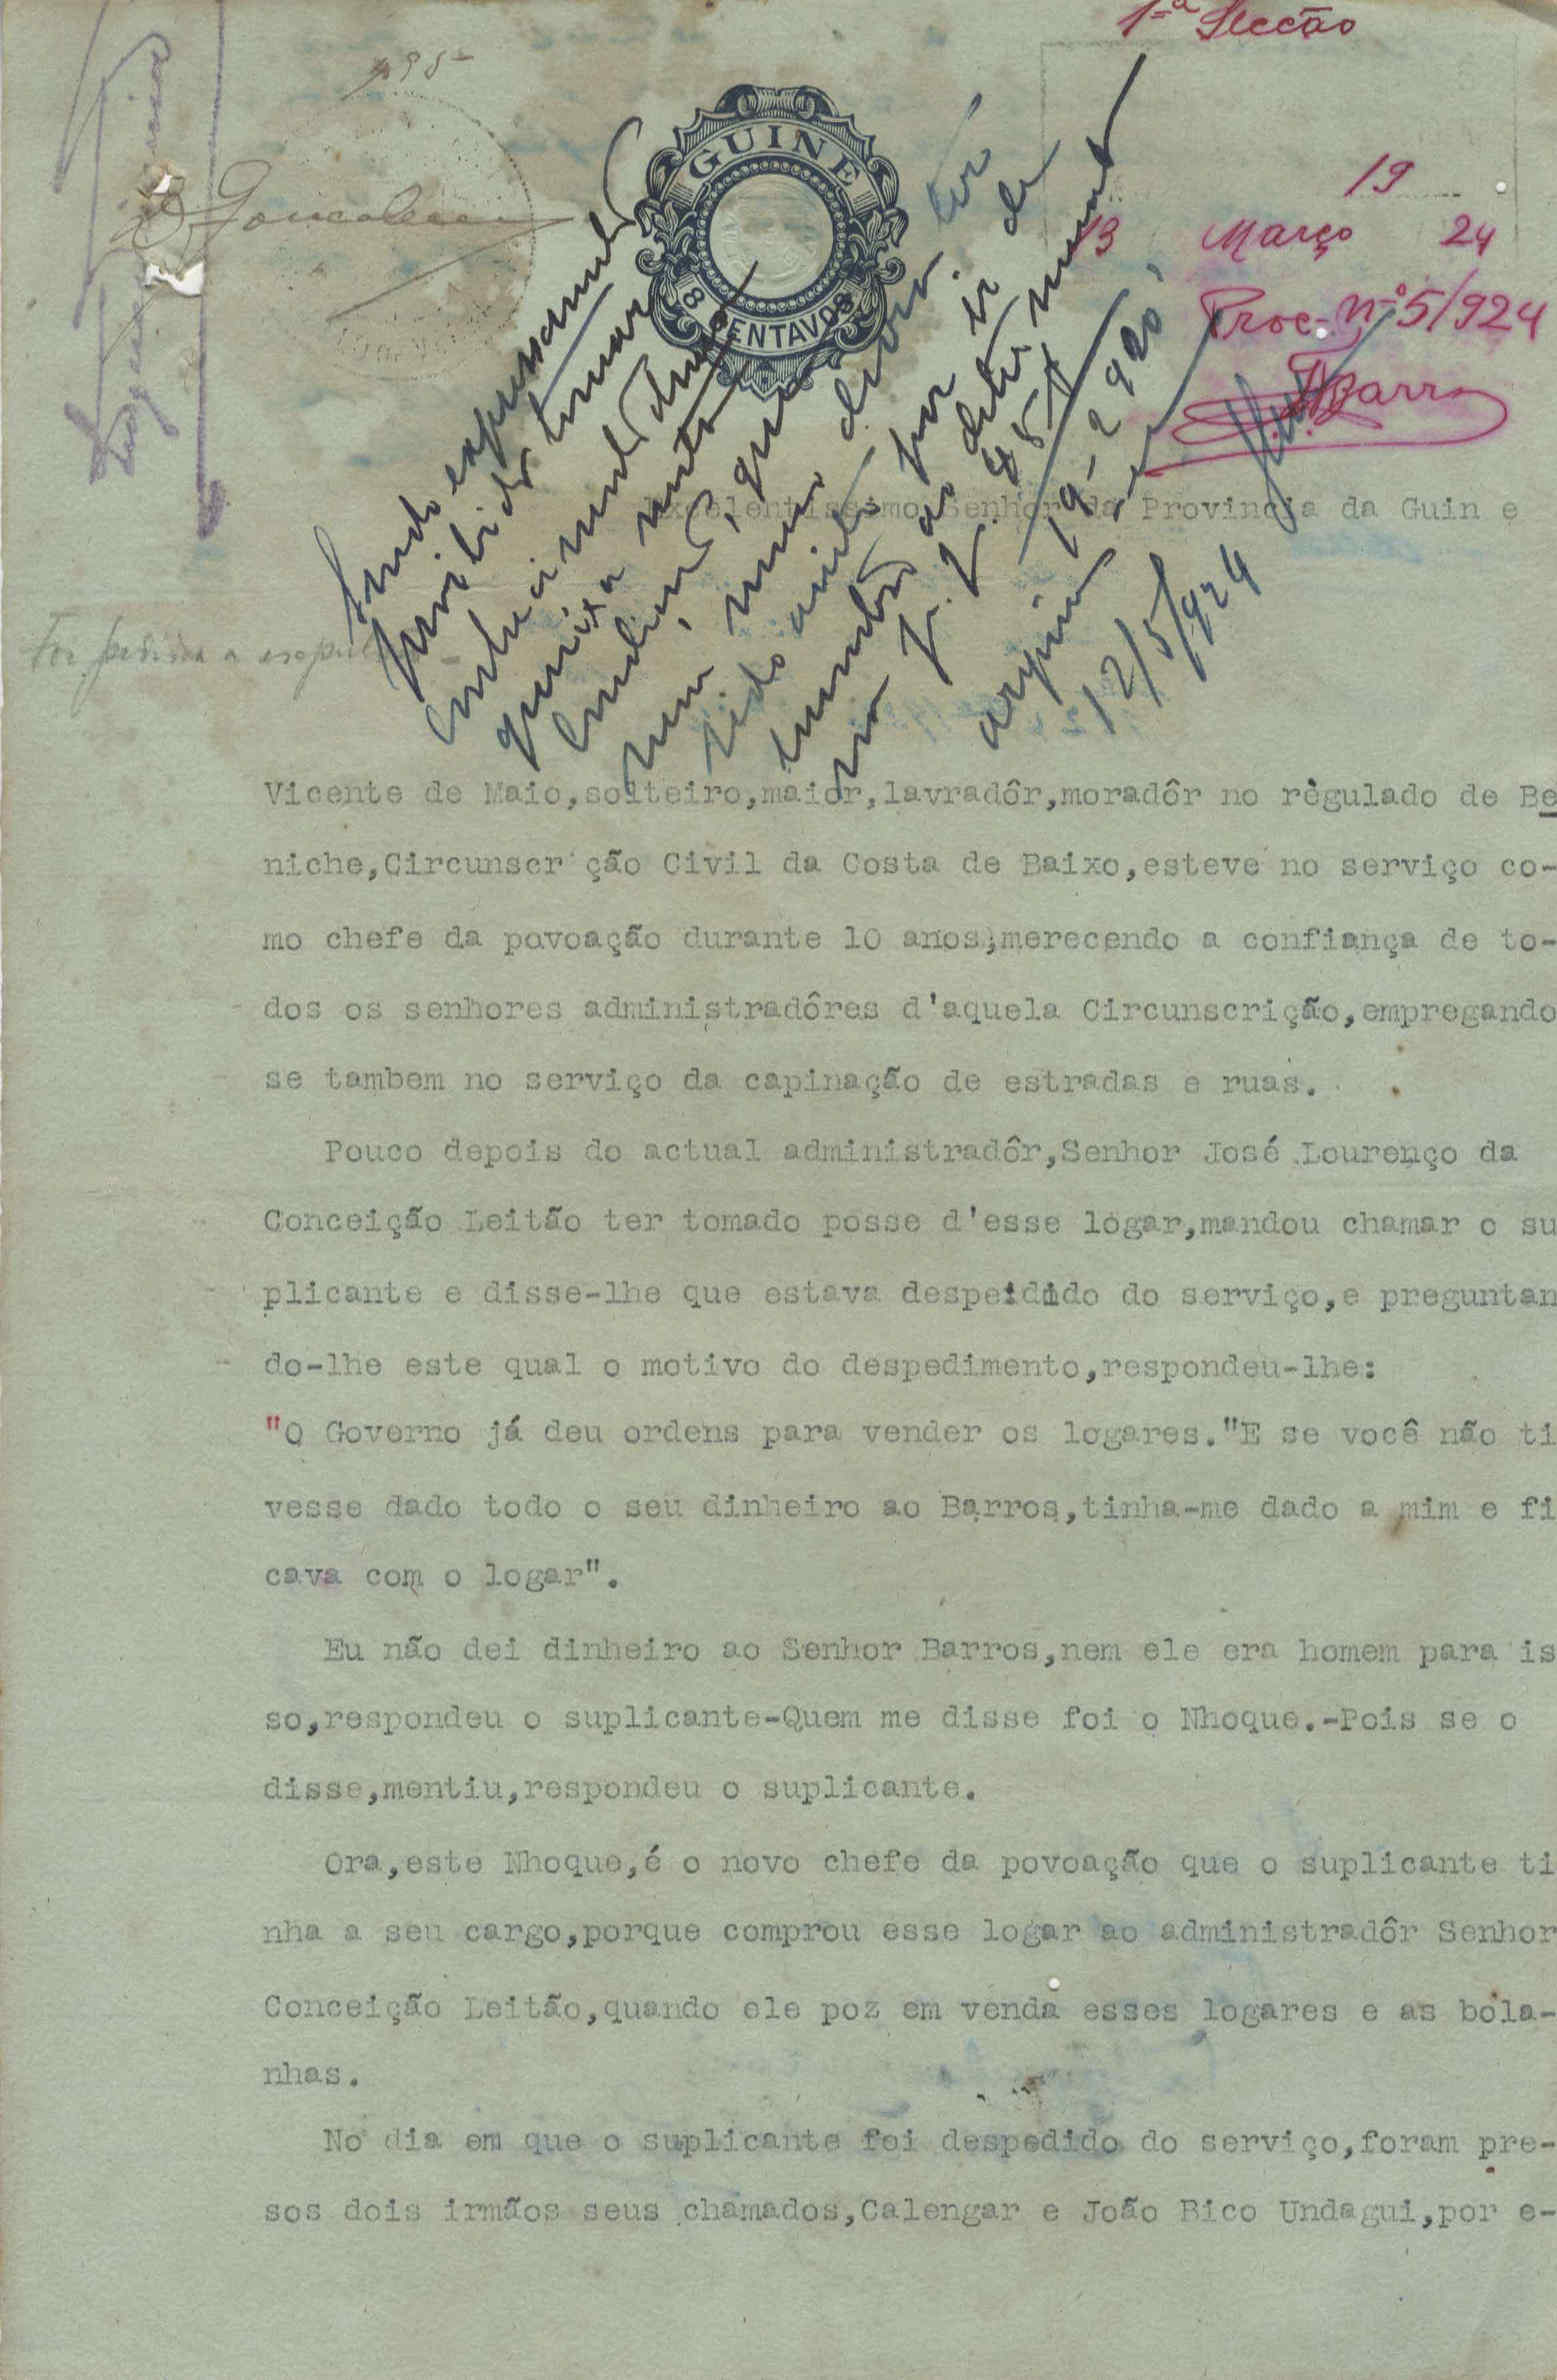 1.ª Secção
GUINE
8 CENTAVOS
19
13 Março 24
Proc. nº 5/924
Barros
Gonçalves
Sendo expressamente
prohibido tomar
conhecimento d'uma
queixa
que
nem mesmo devera ter
sido aceite por ir de
encontro ao determinado
no P. P. 85
19-2-920,
arquive-se
12/5/924
Excelentissimo Senhor da Provincia da Guin e
Foi pedida a
Vicente de Maio,solteiro,maior,lavradôr,moradôr no règulado de Be
niche,Circunscr ção Civil da Costa de Baixo,esteve no serviço co-
mo chefe da povoação durante 10 anos,merecendo a confiança de to-
dos os senhores administradôres d'aquela Circunscrição,empregando
se tambem no serviço da capinação de estradas e ruas.
Pouco depois do actual administradôr,Senhor José Lourenço da
Conceição Leitão ter tomado posse d'esse lógar,mandou chamar o su
plicante e disse-lhe que estava despedido do serviço,e preguntan
do-lhe este qual o motivo do despedimento,respondeu-lhe:
"O Governo já deu ordens para vender os logares."E se você não ti
vesse dado todo o seu dinheiro ao Barros,tinha-me dado a mim e fi
cava com o logar".
Eu não dei dinheiro ao Senhor Barros,nem ele era homem para is
so,respondeu o suplicante-Quem me disse foi o Nhoque.-Pois se o
disse,mentiu,respondeu o suplicante.
Ora,este Nhoque,é o novo chefe da povoação que o suplicante ti
nha a seu cargo,porque comprou esse logar ao administradôr Senhor
Conceição Leitão,quando ele poz em venda esses logares e as bola-
nhas.
No dia em que o suplicante foi despedido do serviço,foram pre-
sos dois irmãos seus chamados,Calengar e João Bico Undagui,por e-